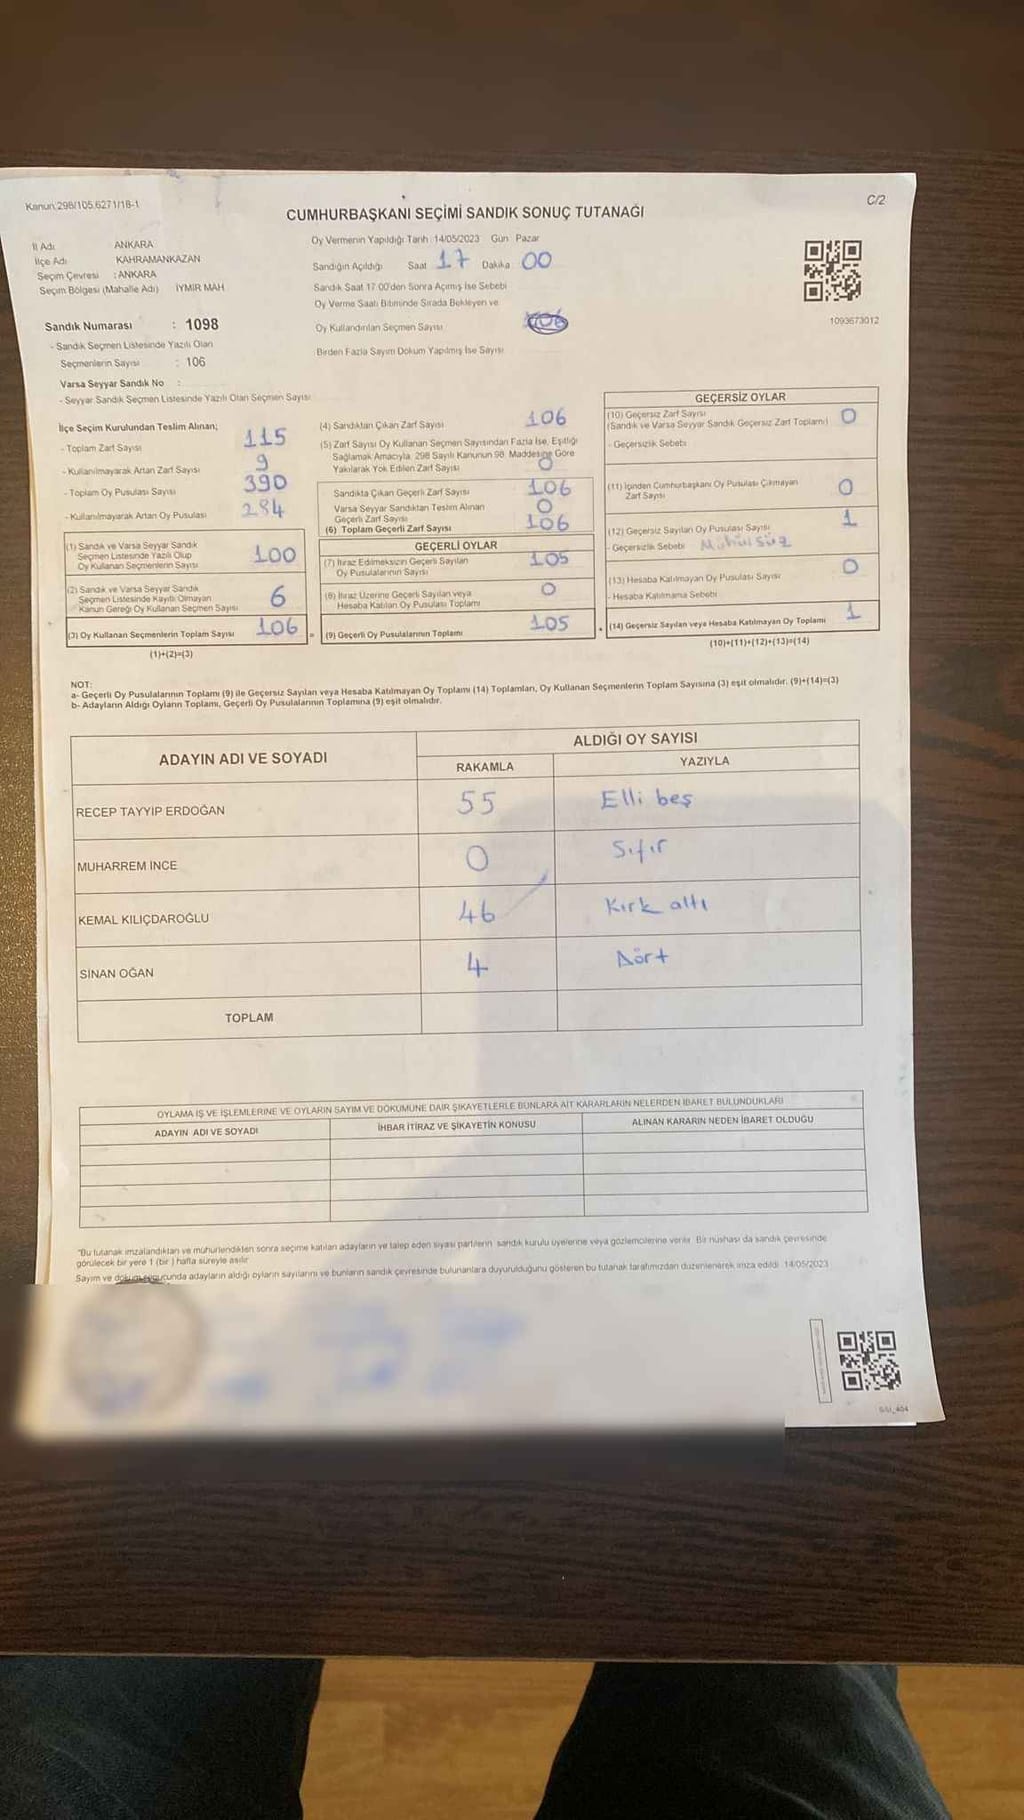 Kanun,298/105,6271/18-1
C/2
CUMHURBAŞKANI SEÇİMİ SANDIK SONUÇ TUTANAĞI
İl Adı ANKARA
İlçe Adı KAHRAMANKAZAN
Seçim Çevresi : ANKARA
Seçim Bölgesi (Mahalle Adı) İYMİR MAH
Sandık Numarası : 1098
- Sandık Seçmen Listesinde Yazılı Olan
Seçmenlerin Sayısı : 106
Varsa Seyyar Sandık No :
- Seyyar Sandık Seçmen Listesinde Yazılı Olan Seçmen Sayısı
Oy Vermenin Yapıldığı Tarih 14/05/2023 Gün Pazar
Sandığın Açıldığı Saat 17 Dakika 00
Sandık Saat 17 00'den Sonra Açımış İse Sebebi
Oy Verme Saati Bitiminde Sırada Bekleyen ve
Oy Kullandırılan Seçmen Sayısı
Birden Fazla Sayım Döküm Yapılmış İse Sayısı
1093673012
İlçe Seçim Kurulundan Teslim Alınan;
- Toplam Zarf Sayısı 115
- Kullanılmayarak Artan Zarf Sayısı 9
- Toplam Oy Pusulası Sayısı 390
- Kullanılmayarak Artan Oy Pusulası 284
(1) Sandık ve Varsa Seyyar Sandık
Seçmen Listesinde Yazılı Olup
Oy Kullanan Seçmenlerin Sayısı 100
(2) Sandık ve Varsa Seyyar Sandık
Seçmen Listesinde Kayıtlı Olmayan
Kanun Gereği Oy Kullanan Seçmen Sayısı 6
(3) Oy Kullanan Seçmenlerin Toplam Sayısı 106 =
(1)+(2)=(3)
(4) Sandıktan Çıkan Zarf Sayısı 106
(5) Zarf Sayısı Oy Kullanan Seçmen Sayısından Fazla İse, Eşitliği
Sağlamak Amacıyla, 298 Sayılı Kanunun 98. Maddesine Göre
Yakılarak Yok Edilen Zarf Sayısı 0
Sandıkta Çıkan Geçerli Zarf Sayısı 106
Varsa Seyyar Sandıktan Teslim Alınan
Geçerli Zarf Sayısı 0
(6) Toplam Geçerli Zarf Sayısı 106
GEÇERLİ OYLAR
(7) İtiraz Edilmeksizin Geçerli Sayılan
Oy Pusulalarının Sayısı 105
(8) İtiraz Üzerine Geçerli Sayılan veya
Hesaba Katılan Oy Pusulası Toplamı 0
(9) Geçerli Oy Pusulalarının Toplamı 105 +
GEÇERSİZ OYLAR
(10) Geçersiz Zarf Sayısı
(Sandık ve Varsa Seyyar Sandık Geçersiz Zarf Toplamı) 0
- Geçersizlik Sebebi
(11) İçinden Cumhurbaşkanı Oy Pusulası Çıkmayan
Zarf Sayısı 0
(12) Geçersiz Sayılan Oy Pusulası Sayısı 1
- Geçersizlik Sebebi Mühürsüz
(13) Hesaba Katılmayan Oy Pusulası Sayısı 0
- Hesaba Katılmama Sebebi
(14) Geçersiz Sayılan veya Hesaba Katılmayan Oy Toplamı 1
(10)+(11)+(12)+(13)=(14)
NOT:
a- Geçerli Oy Pusulalarının Toplamı (9) ile Geçersiz Sayılan veya Hesaba Katılmayan Oy Toplamı (14) Toplamları, Oy Kullanan Seçmenlerin Toplam Sayısına (3) eşit olmalıdır. (9)+(14)=(3)
b- Adayların Aldığı Oyların Toplamı, Geçerli Oy Pusulalarının Toplamına (9) eşit olmalıdır.
ADAYIN ADI VE SOYADI
ALDIĞI OY SAYISI
RAKAMLA YAZIYLA
RECEP TAYYİP ERDOĞAN 55 Elli beş
MUHARREM İNCE 0 Sıfır
KEMAL KILIÇDAROĞLU 46 Kırk altı
SİNAN OĞAN 4 Dört
TOPLAM
OYLAMA İŞ VE İŞLEMLERİNE VE OYLARIN SAYIM VE DÖKÜMÜNE DAİR ŞİKAYETLERLE BUNLARA AİT KARARLARIN NELERDEN İBARET BULUNDUKLARI
ADAYIN ADI VE SOYADI İHBAR İTİRAZ VE ŞİKAYETİN KONUSU ALINAN KARARIN NEDEN İBARET OLDUĞU
*Bu tutanak imzalandıktan ve mühürlendikten sonra seçime katılan adayların ve talep eden siyasi partilerin sandık kurulu üyelerine veya gözlemcilerine verilir. Bir nüshası da sandık çevresinde
görülecek bir yere 1 (bir) hafta süreyle asılır
Sayım ve döküm sonucunda adayların aldığı oyların sayılarını ve bunların sandık çevresinde bulunanlara duyurulduğunu gösteren bu tutanak tarafımızdan düzenlenerek imza edildi 14/05/2023